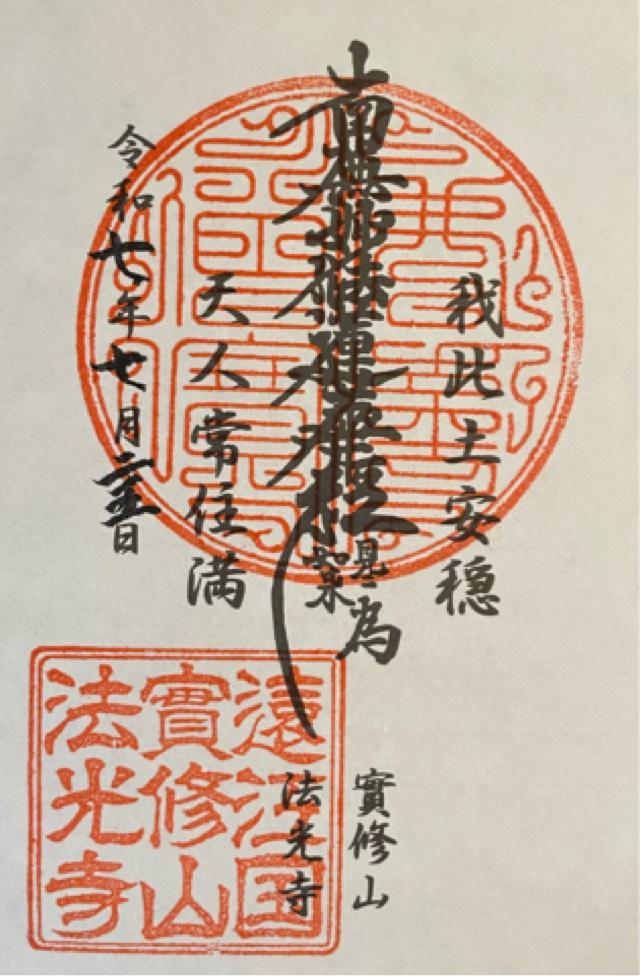 我此土安穏
南無妙法蓮華経
見為
如来
天人常住満
令和七年七月二十五日
實修山
法光寺
遠江国
實修山
法光寺